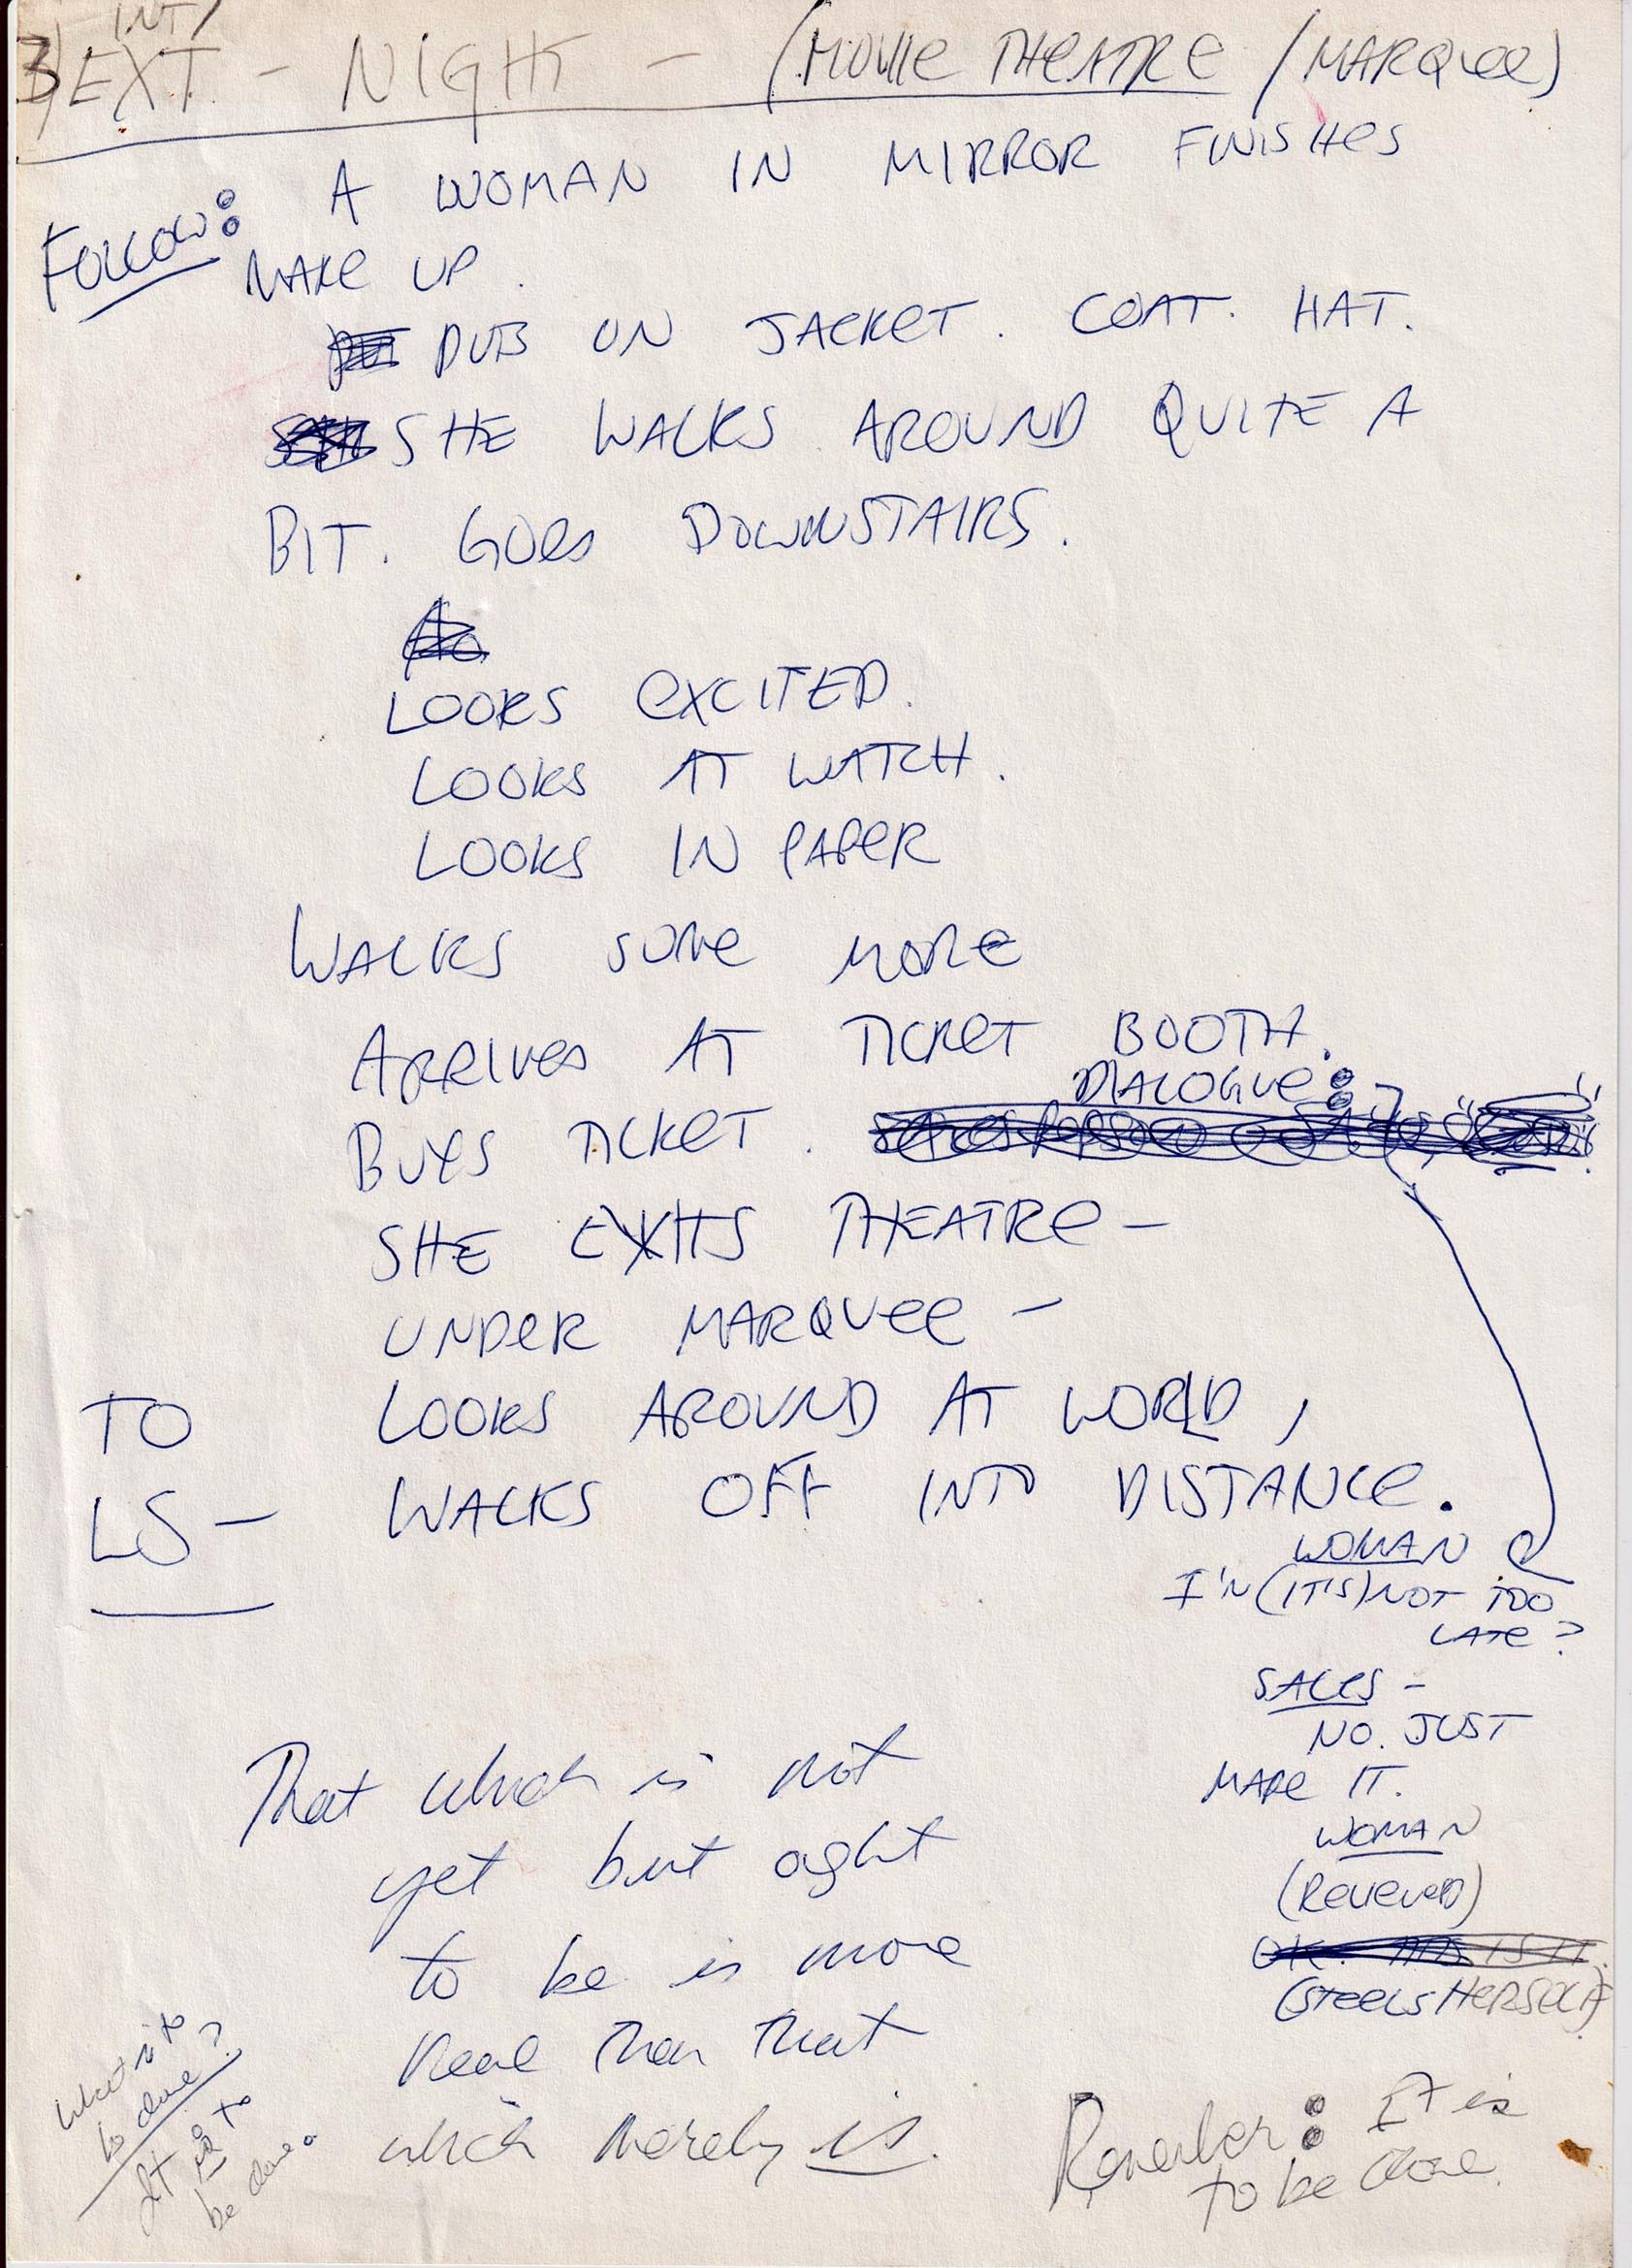 INT/
3) EXT - NIGHT - (MOVIE THEATRE / MARQUEE)
FOLLOW: A WOMAN IN MIRROR FINISHES
MAKE UP.
PUTS ON JACKET. COAT. HAT.
SHE WALKS AROUND QUITE A
BIT. GOES DOWNSTAIRS.
LOOKS EXCITED.
LOOKS AT WATCH.
LOOKS IN PAPER
WALKS SOME MORE
ARRIVES AT TICKET BOOTH.
DIALOGUE:
BUYS TICKET.
SHE EXITS THEATRE -
UNDER MARQUEE -
TO LOOKS AROUND AT WORLD,
LS - WALKS OFF INTO DISTANCE.
WOMAN
I'M (IT'S) NOT TOO
LATE?
SALES -
NO. JUST
MADE IT.
WOMAN
(RELIEVED)
OK. THIS IS IT.
(STEELS HERSELF)
That which is not
yet but oght
to be is more
real than that
which merely is.
What is to
be done?
It is to
be done.
Remember: It is
to be done.